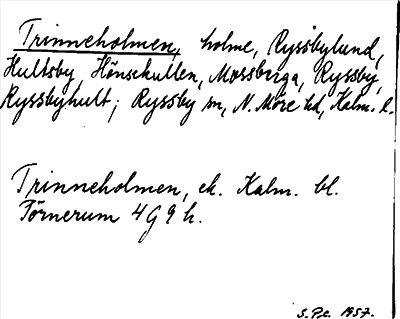 Trinneholmen, holme, Ryssbylund,
Hultsby, Hönsekullen, Mossberga, Ryssby,
Ryssbyhult; Ryssby sn, N. Möre hd, Kalm. l.
Trinneholmen, ek. Kalm. bl.
Törnerum 4G9h.
S.Pt. 1957.